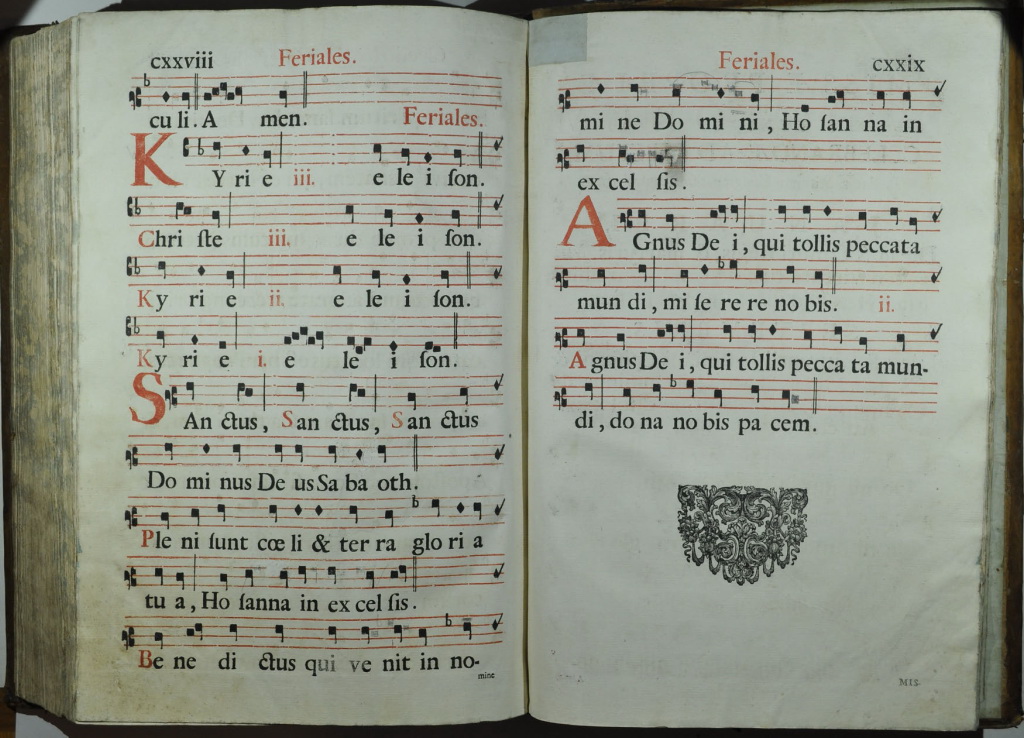 cxxviii Feriales.
cu li. A men. Feriales.
KYrie iii. e le i ſon.
Chri ſte iii. e le i ſon.
Ky ri e ii. e le i ſon.
Ky ri e i. e le i ſon.
SAn ctus, San ctus, San ctus
Do mi nus De us Sa ba oth.
Ple ni ſunt cœ li & ter ra glo ri a
tu a, Ho ſanna in ex cel ſis.
Be ne di ctus qui ve nit in no-
mine
Feriales. cxxix
mi ne Do mi ni, Ho ſan na in
ex cel ſis.
AGnus De i, qui tollis peccata
mun di, mi ſe re re no bis. ii.
Agnus De i, qui tollis pecca ta mun-
di, do na no bis pa cem.
MIS